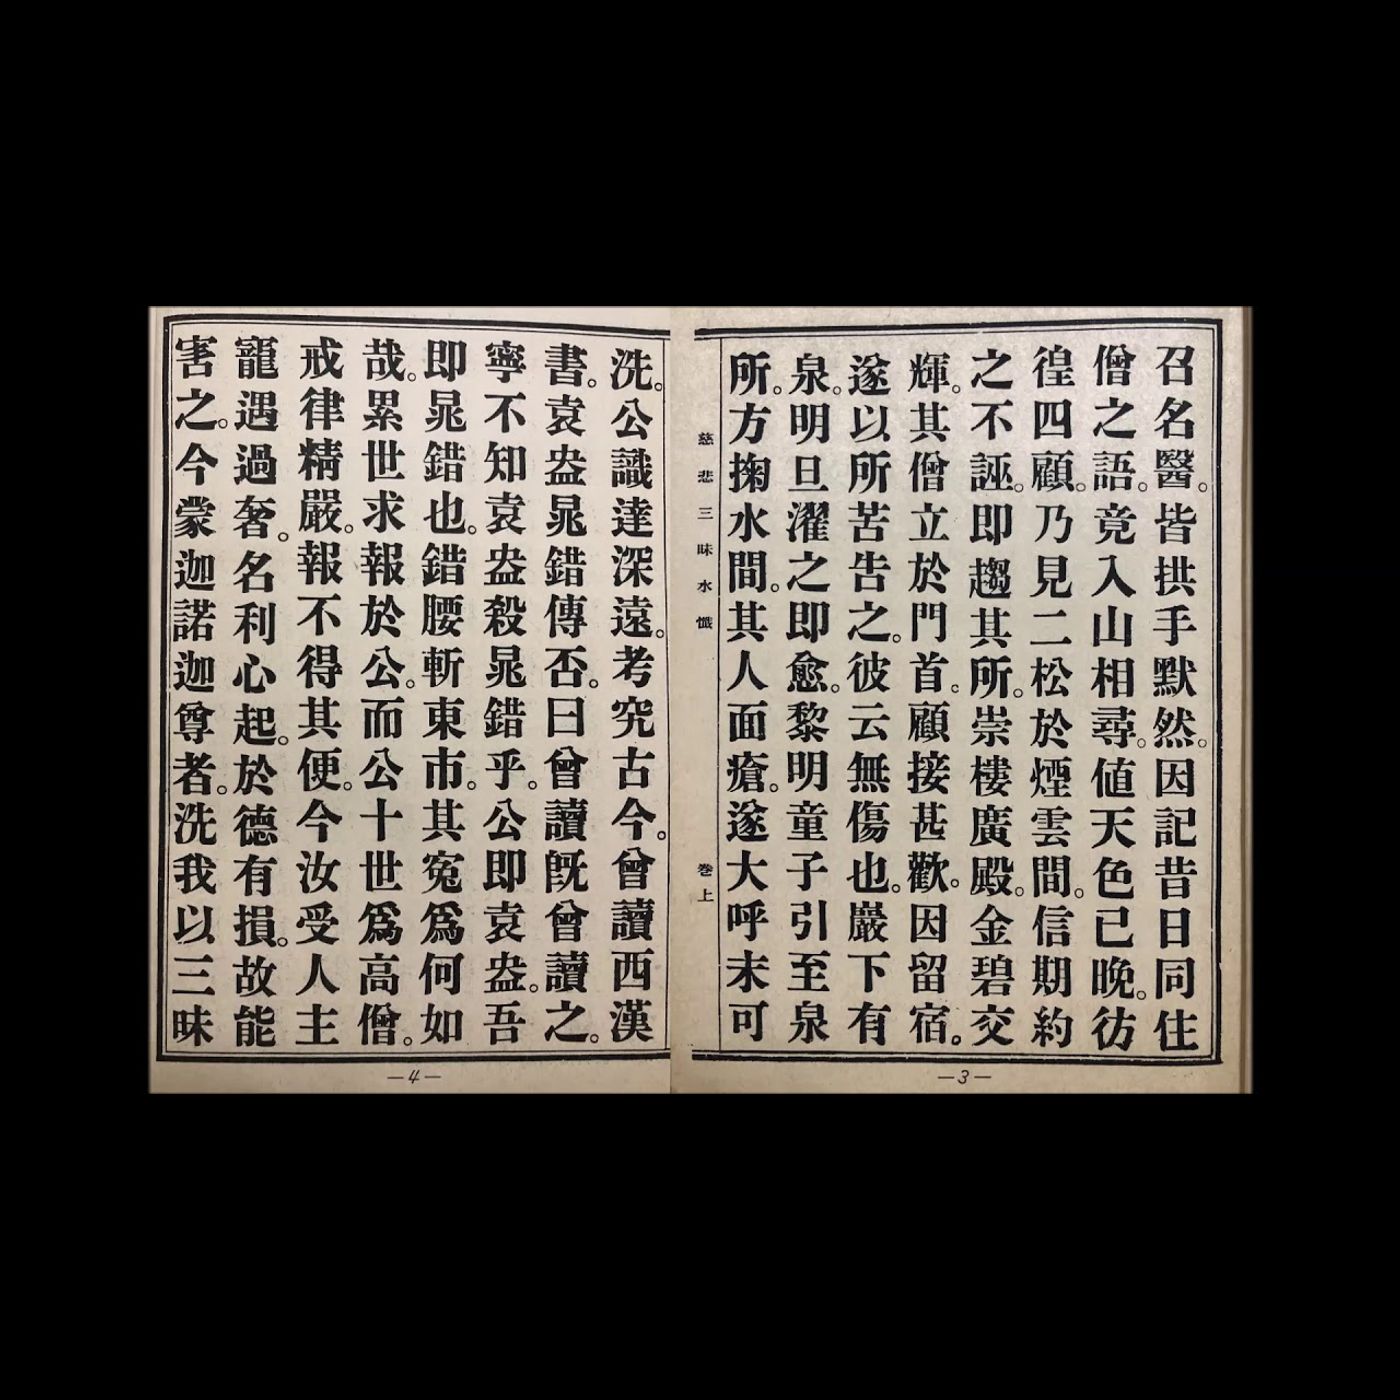 召名醫。皆拱手默然。因記昔日同住
僧之語。竟入山相尋。値天色已晚。彷
徨四顧。乃見二松於煙雲間。信期約
之不誣。即趨其所。崇樓廣殿。金碧交
輝。其僧立於門首。顧接甚歡。因留宿。
遂以所苦告之。彼云無傷也。巖下有
泉。明旦濯之即愈。黎明童子引至泉
所。方掬水間。其人面瘡。遂大呼未可
慈悲三昧水懺 卷上
—3—
洗。公識達深遠。考究古今。曾讀西漢
書。袁盎晁錯傳否。曰曾讀。旣曾讀之。
寧不知袁盎殺晁錯乎。公即袁盎。吾
即晁錯也。錯腰斬東市。其冤爲何如
哉。累世求報於公。而公十世爲高僧。
戒律精嚴。報不得其便。今汝受人主
寵遇過奢。名利心起。於德有損。故能
害之。今蒙迦諾迦尊者。洗我以三昧
—4—